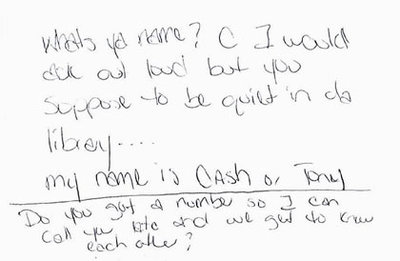 whats yo name? C I would
ask out loud but you
suppose to be quiet in da
library....
my name is CAsh or Tony
Do you got a number so I can
call you late and we get to know
each other?